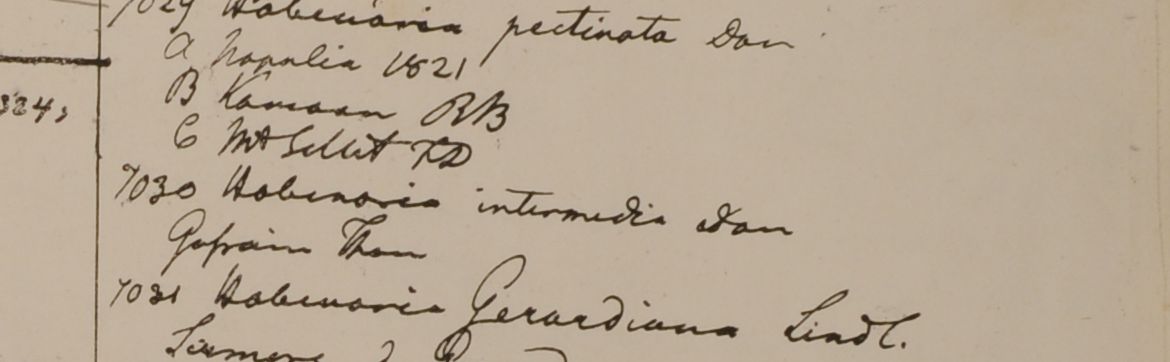 7029 Habenaria pectinata Don
A Napalia 1821
B Kamaon RB
C Mt Sillet FD
324,
7030 Habenaria intermedia Don
Gosain Than
7031 Habenaria Gerardiana Lindl.
Sirmore